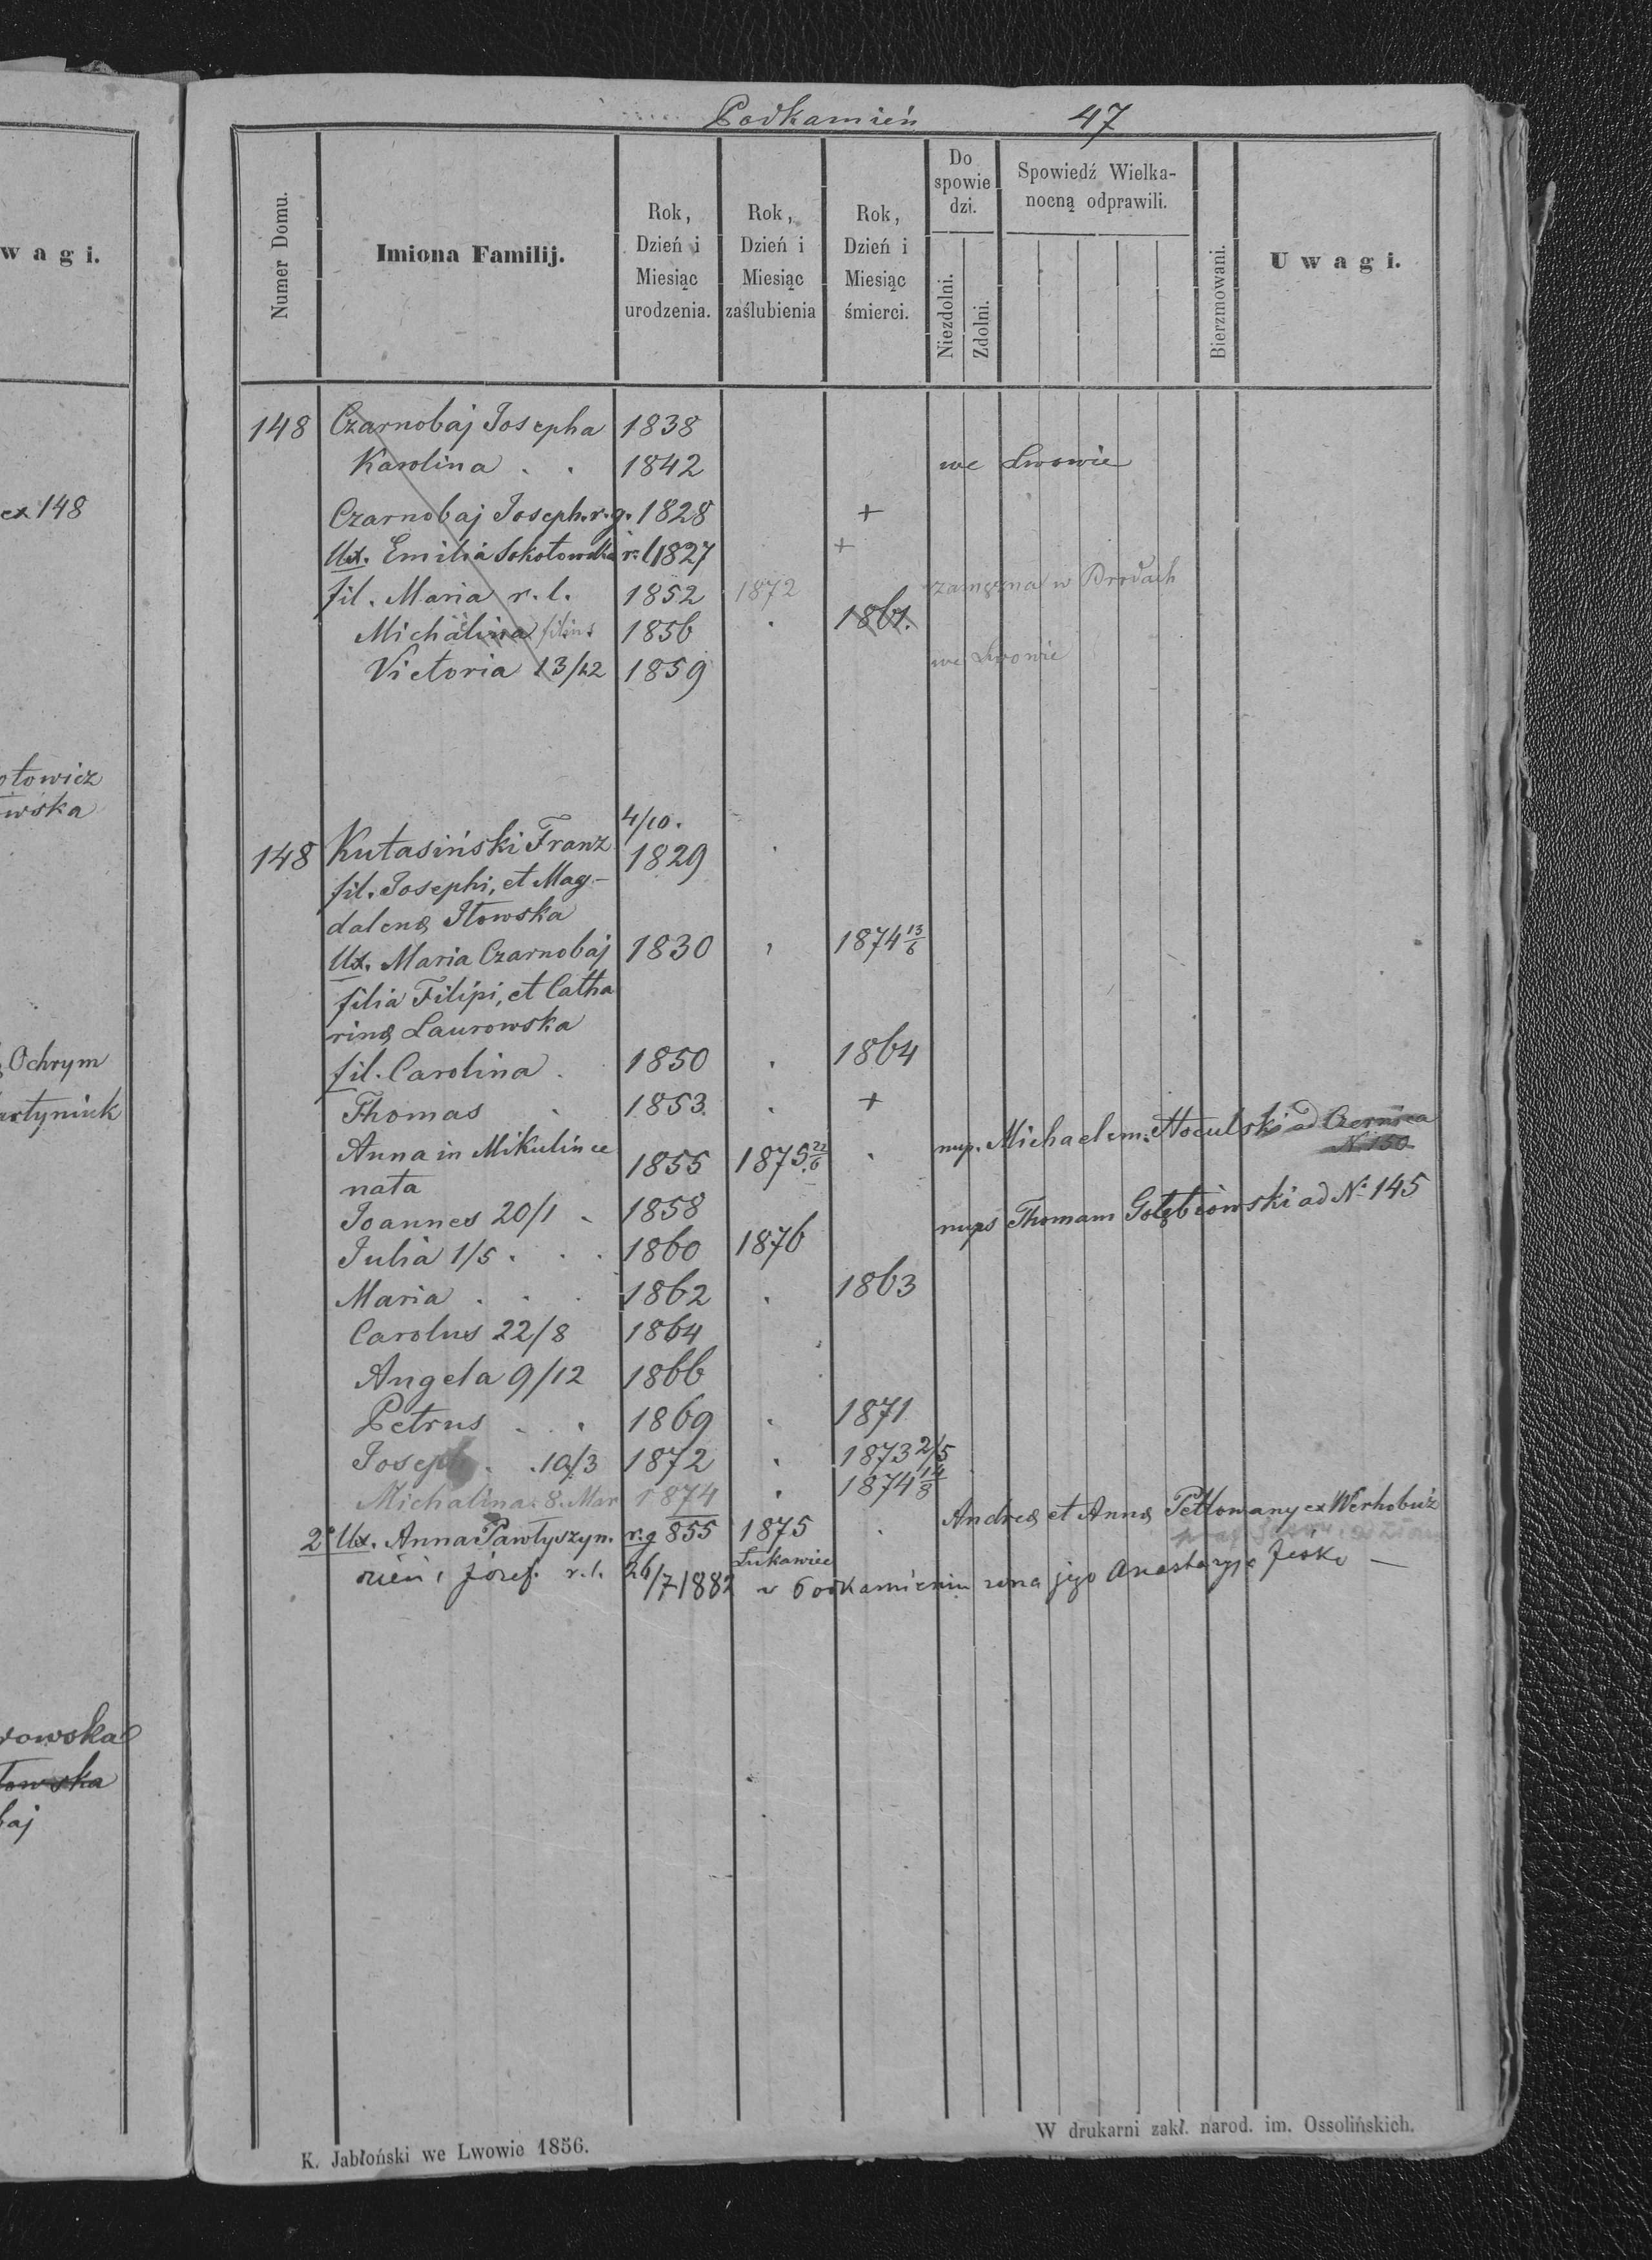 Podkamień 47
Numer Domu.
Imiona Familij.
Rok, Dzień i Miesiąc urodzenia.
Rok, Dzień i Miesiąc zaślubienia
Rok, Dzień i Miesiąc śmierci.
Do spowie dzi.
Niezdolni.
Zdolni.
Spowiedź Wielka-
nocną odprawili.
Bierzmowani.
Uwagi.
wagi.
148 Czarnobaj Josepha 1838
Karolina . . 1842 we Lwowie
ex 148
Czarnobaj Joseph. r. g. 1828 +
Ux. Emilia Sokołowska r. l 1827 +
fil. Maria r. l. 1852 1872 zamężna w Brodach
Michalina filius 1856 . 1861.
Victoria 13/12 1859 we Lwowie
otowicz
wska
4/10.
148 Kutasiński Franz 1829
fil. Josephi, et Mag-
dalenę Iłowska
Ux. Maria Czarnobaj 1830 . 1874 13/6
filia Filipi, et Catha
rinę Laurowska
fil. Carolina . 1850 . 1864
Ochrym
Thomas . 1853. . +
artyniuk
Anna in Mikulińce 1855 1875. 22/6 . nup. Michaelem Hoculski ad Czernica
N. 150
nata
Joannes 20/1 . 1858
Julia 1/5 . . . 1860 1876 nups Thomam Gołębiowski ad N: 145
Maria . . . 1862 . 1863
Carolus 22/8 1864
Angela 9/12 1866
Petrus . . 1869 . 1871
Joseph . . 10/3 1872 . 1873 2/5
Michalina. 8. Mar 1874 . 1874 14/8
2° Ux. Anna Pawłyszyn. r. g 855 1875 . Andreę et Annę Petlowany ex Werhobuż
Łukawiec
Józef. r. l. 26/7 1882 w Podkamieniu żona jego Anastazyja
rowska
łowska
baj
K. Jabłoński we Lwowie 1856.
W drukarni zakł. narod. im. Ossolińskich.